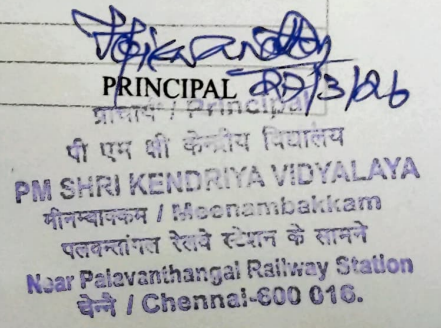 PRINCIPAL 27/3/26
प्राचार्य / Principal
पी एम श्री केन्द्रीय विद्यालय
PM SHRI KENDRIYA VIDYALAYA
मीनम्बाक्कम / Meenambakkam
पलवन्तांगल रेलवे स्टेशन के सामने
Near Palavanthangal Railway Station
चेन्नै / Chennai-600 016.